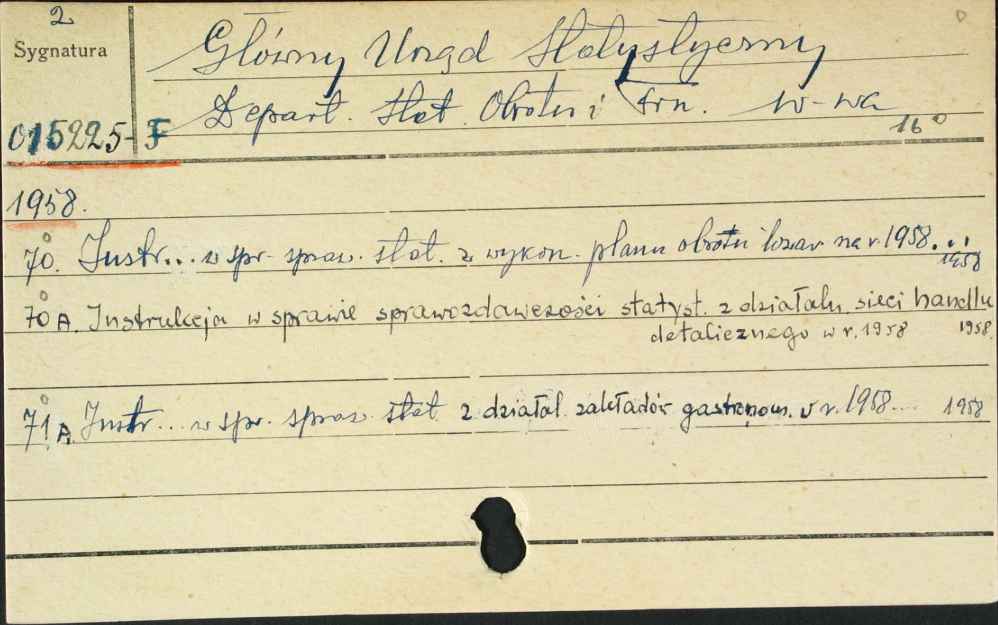 2
Sygnatura
Główny Urząd Statystyczny
Depart. Stat. Obrotu i Frn. W-wa
015225-F
16°
1958.
70. Instr... w spr. spraw. stat. z wykon. planu obrotu towar na r. 1958...
1958
70 A. Instrukcja w sprawie sprawozdawczości statyst. z działaln. sieci handlu
detalicznego w r. 1958 1958
71 A. Instr... w spr. spraw stat z działal. zakładów gastronom. w r. 1958... 1958